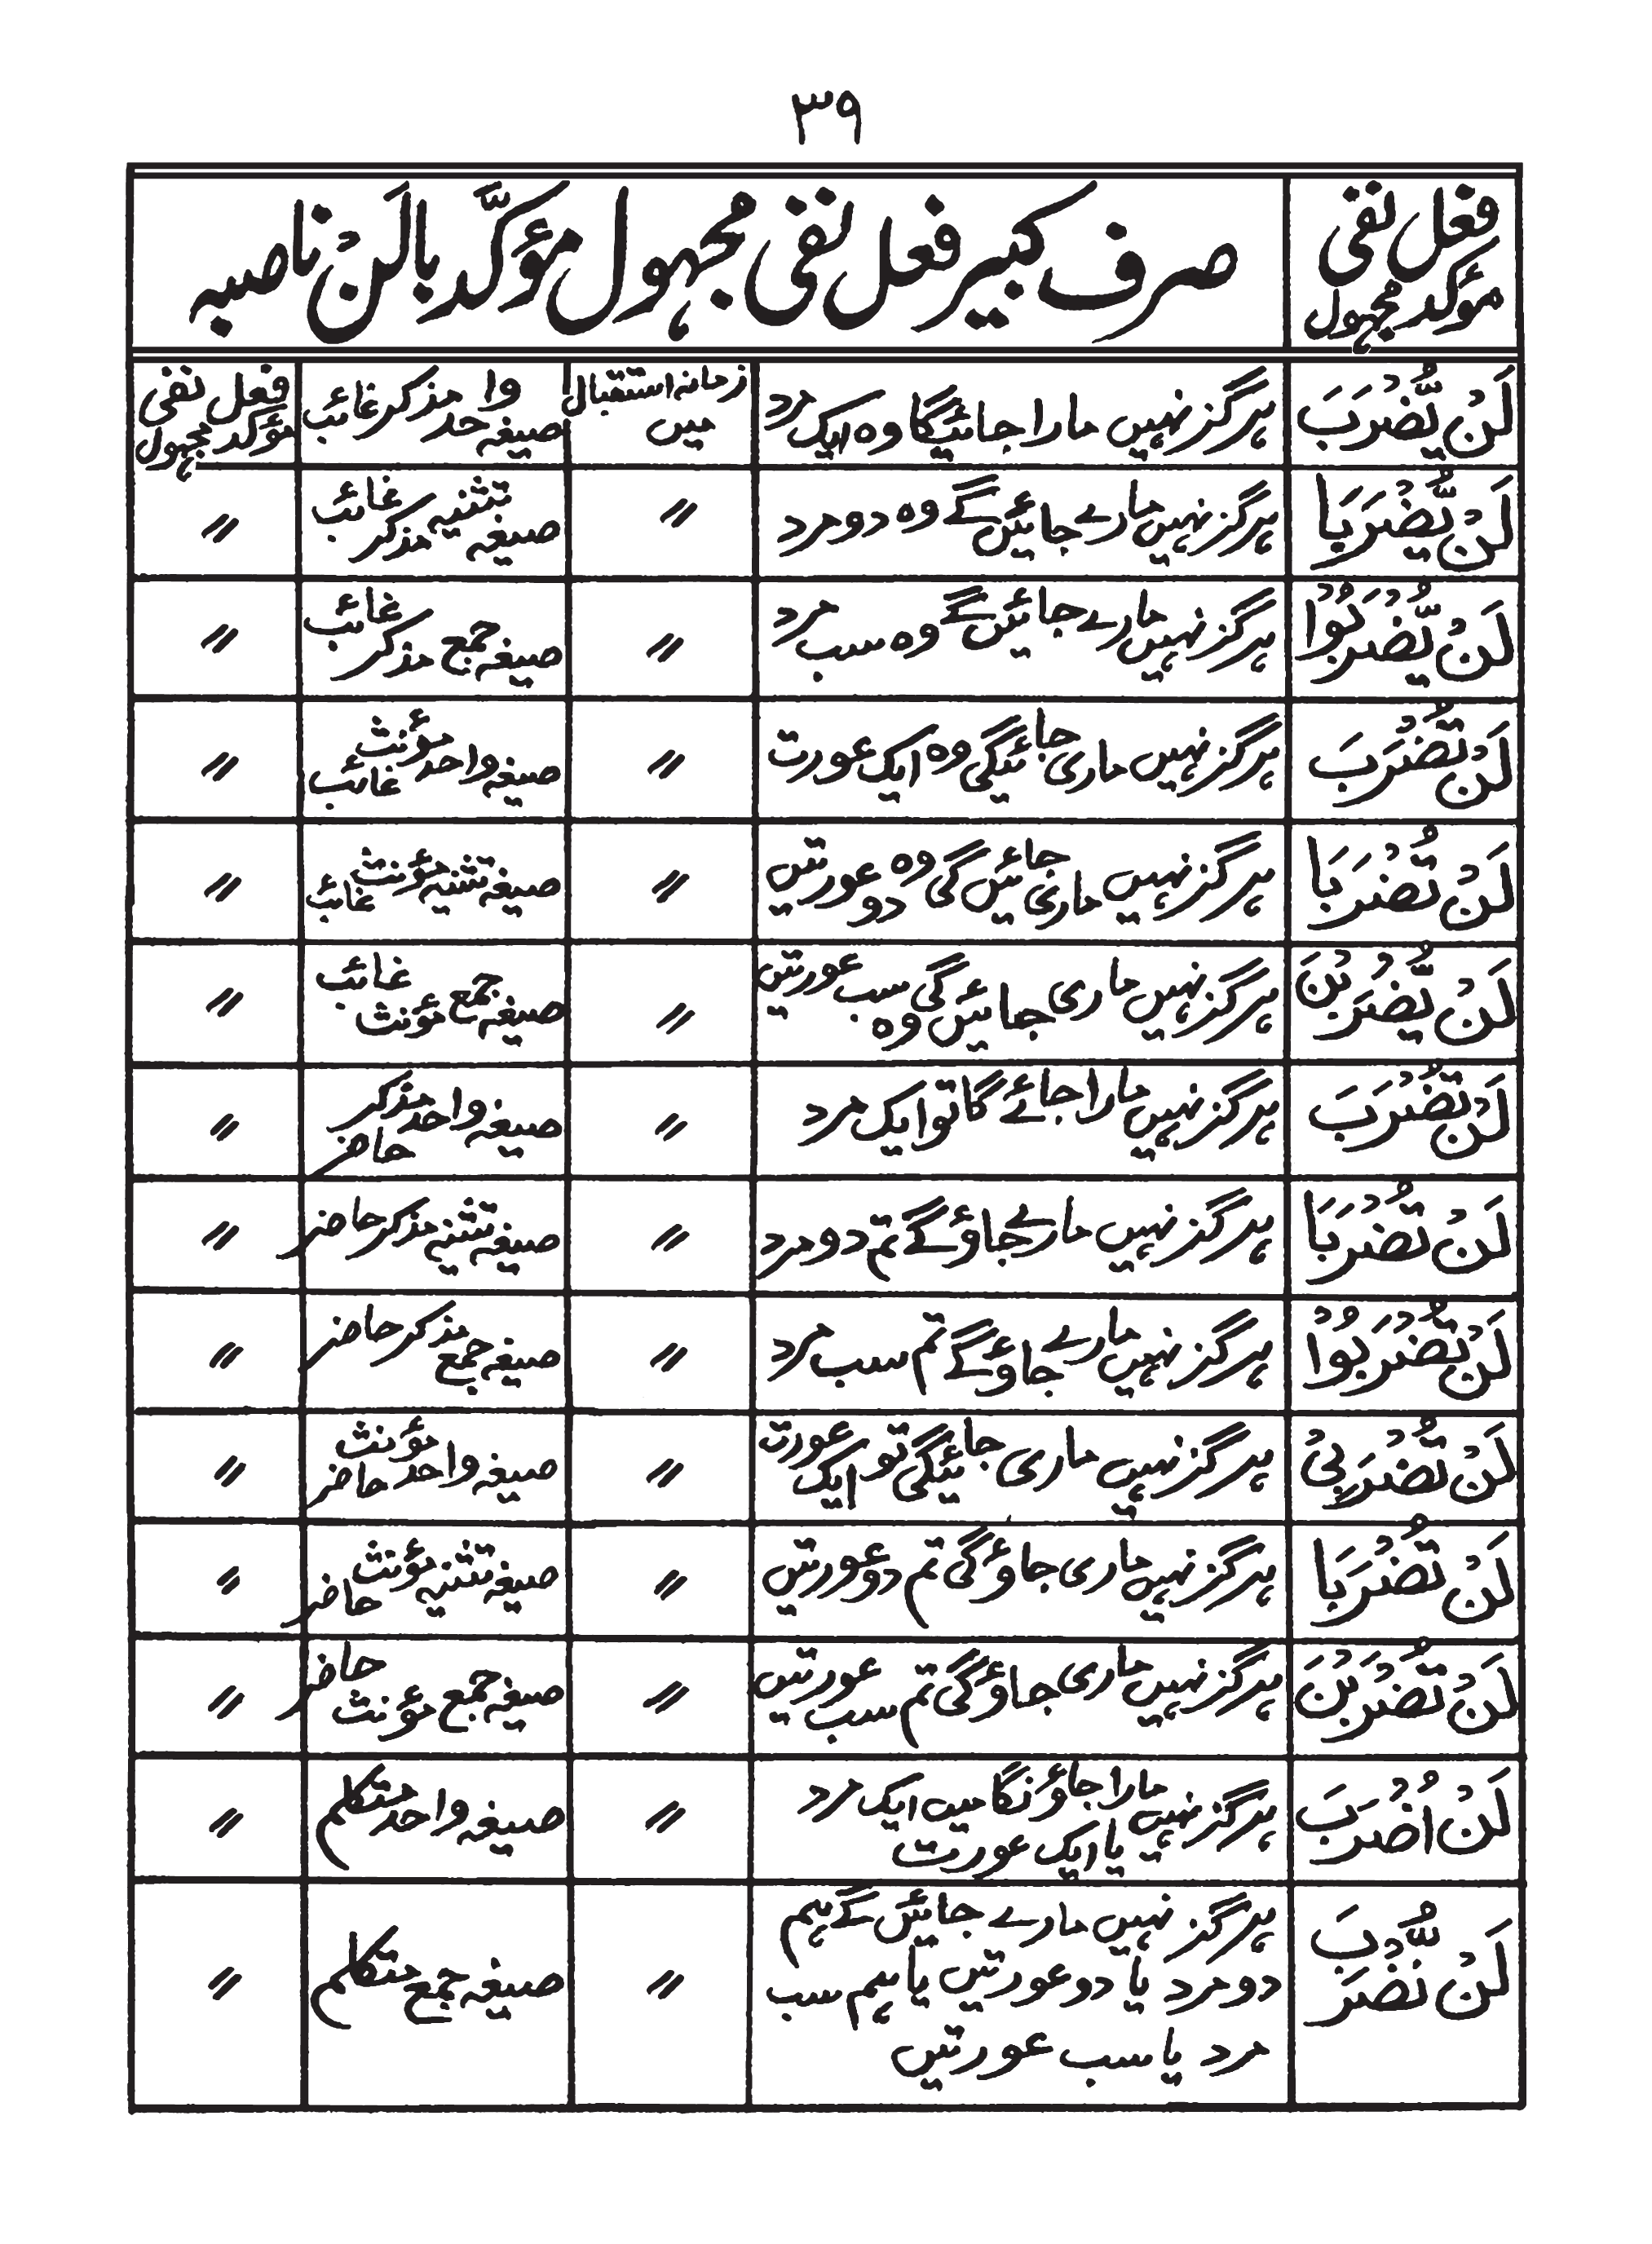 ۳۹
فعل نفی مؤکد مجہول
صرف کبیر فعل نفی مجہول مؤکَّد بالَنْ ناصبہ
لَنْ یُّضْرَبَ ہرگز نہیں مارا جائیگا وہ ایک مرد زمانہ استقبال میں صیغہ واحد مذکر غائب فعل نفی مؤکد مجہول
لَنْ یُّضْرَبَا ہرگز نہیں مارے جائیں گے وہ دو مرد 〃 صیغہ تثنیہ مذکر غائب 〃
لَنْ یُّضْرَبُوْا ہرگز نہیں مارے جائیں گے وہ سب مرد 〃 صیغہ جمع مذکر غائب 〃
لَنْ تُضْرَبَ ہرگز نہیں ماری جائیگی وہ ایک عورت 〃 صیغہ واحد مؤنث غائب 〃
لَنْ تُضْرَبَا ہرگز نہیں ماری جائیں گی وہ دو عورتیں 〃 صیغہ تثنیہ مؤنث غائب 〃
لَنْ یُّضْرَبْنَ ہرگز نہیں ماری جائیں گی وہ سب عورتیں 〃 صیغہ جمع مؤنث غائب 〃
لَنْ تُضْرَبَ ہرگز نہیں مارا جائے گا تو ایک مرد 〃 صیغہ واحد مذکر حاضر 〃
لَنْ تُضْرَبَا ہرگز نہیں مارے جاؤ گے تم دو مرد 〃 صیغہ تثنیہ مذکر حاضر 〃
لَنْ تُضْرَبُوْا ہرگز نہیں مارے جاؤ گے تم سب مرد 〃 صیغہ جمع مذکر حاضر 〃
لَنْ تُضْرَبِیْ ہرگز نہیں ماری جائیگی تو ایک عورت 〃 صیغہ واحد مؤنث حاضر 〃
لَنْ تُضْرَبَا ہرگز نہیں ماری جاؤ گی تم دو عورتیں 〃 صیغہ تثنیہ مؤنث حاضر 〃
لَنْ تُضْرَبْنَ ہرگز نہیں ماری جاؤ گی تم سب عورتیں 〃 صیغہ جمع مؤنث حاضر 〃
لَنْ اُضْرَبَ ہرگز نہیں مارا جاؤنگا میں ایک مرد یا ایک عورت 〃 صیغہ واحد متکلم 〃
لَنْ نُّضْرَبَ ہرگز نہیں مارے جائیں گے ہم
دو مرد یا دو عورتیں یا ہم سب
مرد یا سب عورتیں 〃 صیغہ جمع متکلم 〃